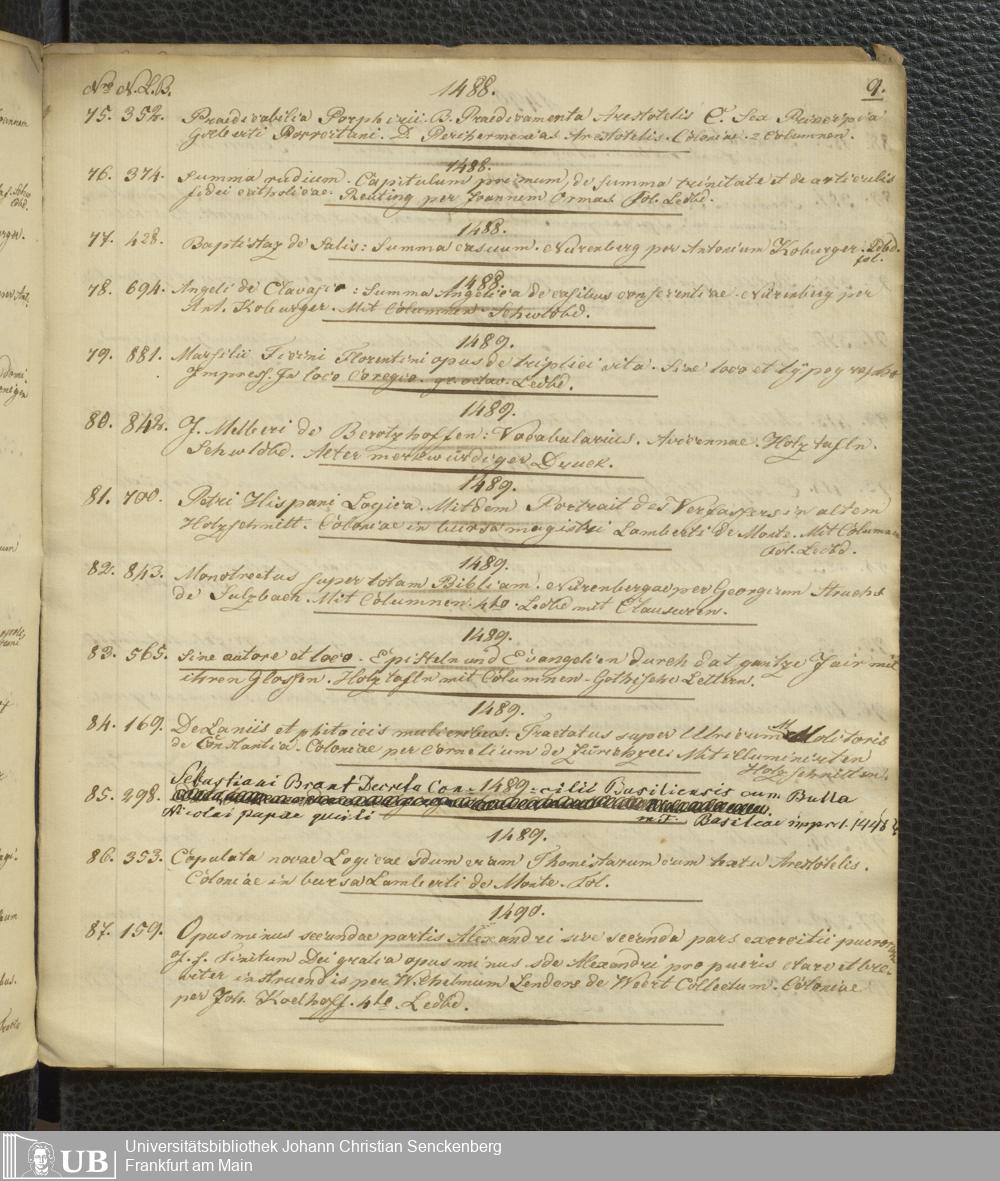 No N.L.B. 1488. 9.
75. 352. Praedicabilia Porphirii. B. Praedicamenta Arestotelis C. Sex Principia
Gilberti Porretani. D. Perihermenias Arestotelis. Coloniae. 2 Columnen.
1488.
76. 374. Summa rudium. Capitulum primum, de summa trinitate et de articulis
fidei catholicae. Reuting per Joannem Otmar. Fol. Ledbd.
1488.
77. 428. Baptistae de Salis: Summa casuum. Nürenberg per Antonium Koburger. Ldbd.
fol.
1488.
78. 694. Angeli de Clavasio: Summa Angelica de casibus conscientiae. Nürenberg per
Ant. Koburger. Mit Columnen. Schwldbd.
1489.
79. 881. Marsilii Ficini Florentini opus de triplici vita. Sine loco et typographo
Impress. In loco Coregio. gr. octav. Ledbd.
1489.
80. 842. J. Melberi de Berolzhoffen: Vocabularius. Avicennae. Holztafln.
Schwldbd. Alter merkwürdiger Druck.
1489.
81. 700. Petri Hispani Logica. Mit dem Portrait des Verfassers in altem
Holzschnitt. Coloniae in bursa magistri Lamberti de Monte. Mit Columnen
Fol. Ledbd.
1489.
82. 843. Monotrectus super totam Bibliam. Nürenbergae per Georgium Struchs
de Sulzbach. Mit Columnen. 4to. Ledbd mit Clausuren.
1489.
83. 565. Sine autore et loco. Episteln und Evangelien durch dat gantze Jair mit
ihren Glossen. Holztafln mit Columnen. Gothische Lettern.
1489.
84. 169. De Laniis et phitoicis mulieribus. Tractatus super Ulricum Molitoris
de Constantia. Coloniae per Cornelium de Zürchzeel Mit illuminirten
Holzschnitten.
Sebastiani Brant Decreta Con- 1489 -cilii Basiliensis cum Bulla
85. 298.
Nicolai papae quinti Basileae
1489.
86. 353. Copulata novae Logicae sdum viam Thomistarum cum textu Arestotelis.
Coloniae in bursa Lamberti de Monte. Fol.
1490.
87. 159. Opus minus secundae partis Alexandri sive secunda pars exercitii puerorum
q. f. finitum Dei gratia opus minus sde Alexandri pro pueris clare et bre-
viter instruendis per Wilhelmum Zenders de Weert Collectum. Coloniae
per Joh. Koelhoff. 4to. Ledbd.
UB Universitätsbibliothek Johann Christian Senckenberg
Frankfurt am Main